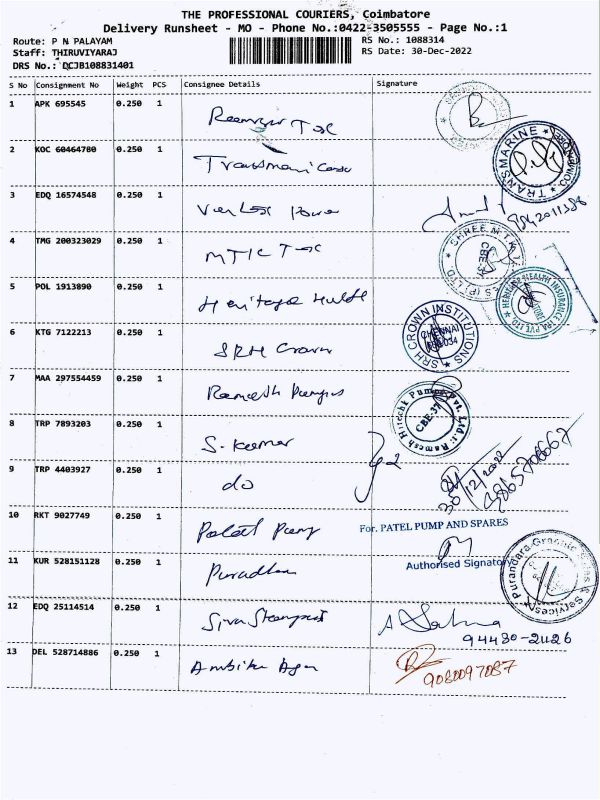 THE PROFESSIONAL COURIERS, Coimbatore
Delivery Runsheet - MO - Phone No.:0422-3505555 - Page No.:1
Route: P N PALAYAM
RS No.: 1088314
Staff: THIRUVIYARAJ
RS Date: 30-Dec-2022
DRS No.: DCJB108831401
S No Consignment No Weight PCS Consignee Details Signature
1 APK 695545 0.250 1
2 KOC 60464780 0.250 1
TRANSMARINE
3 EDQ 16574548 0.250 1
4 TMG 200323029 0.250 1 MTK
SHREE M.T.K
CBE-31
5 POL 1913890 0.250 1 Heritage Health
HERITAGE HEALTH INSURANCE TPA PVT LTD
6 KTG 7122213 0.250 1 SRH Crown
SRH CROWN INSTITUTIONS
CHENNAI
600034
7 MAA 297554459 0.250 1 Ramesh Pumps
Ramesh Hitechk Pumps Pvt. Ltd.
CBE-37
8 TRP 7893203 0.250 1 S. Kumar
30/12/2022
9 TRP 4403927 0.250 1 do
10 RKT 9027749 0.250 1 Patel Pump
For. PATEL PUMP AND SPARES
Authorised Signatory
11 KUR 528151128 0.250 1
Purandara Graphic & Services
12 EDQ 25114514 0.250 1 Siva
94430-2426
13 DEL 528714886 0.250 1 Ambika
9080097087